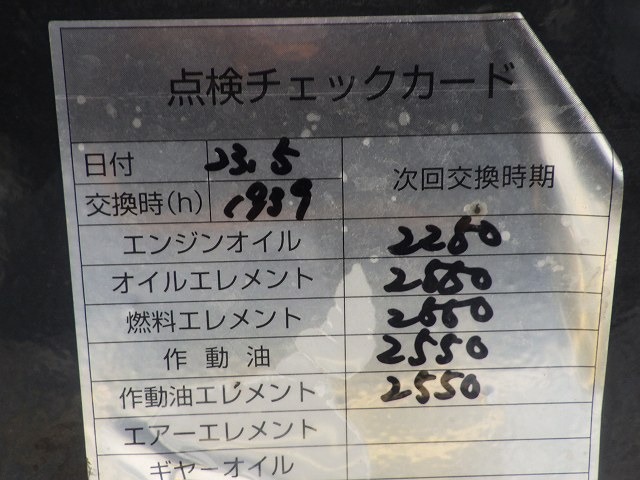 点検チェックカード
日付 23.5 次回交換時期
交換時(h) 1939
エンジンオイル 2250
オイルエレメント 2550
燃料エレメント 2550
作動油 2550
作動油エレメント 2550
エアーエレメント
ギヤーオイル